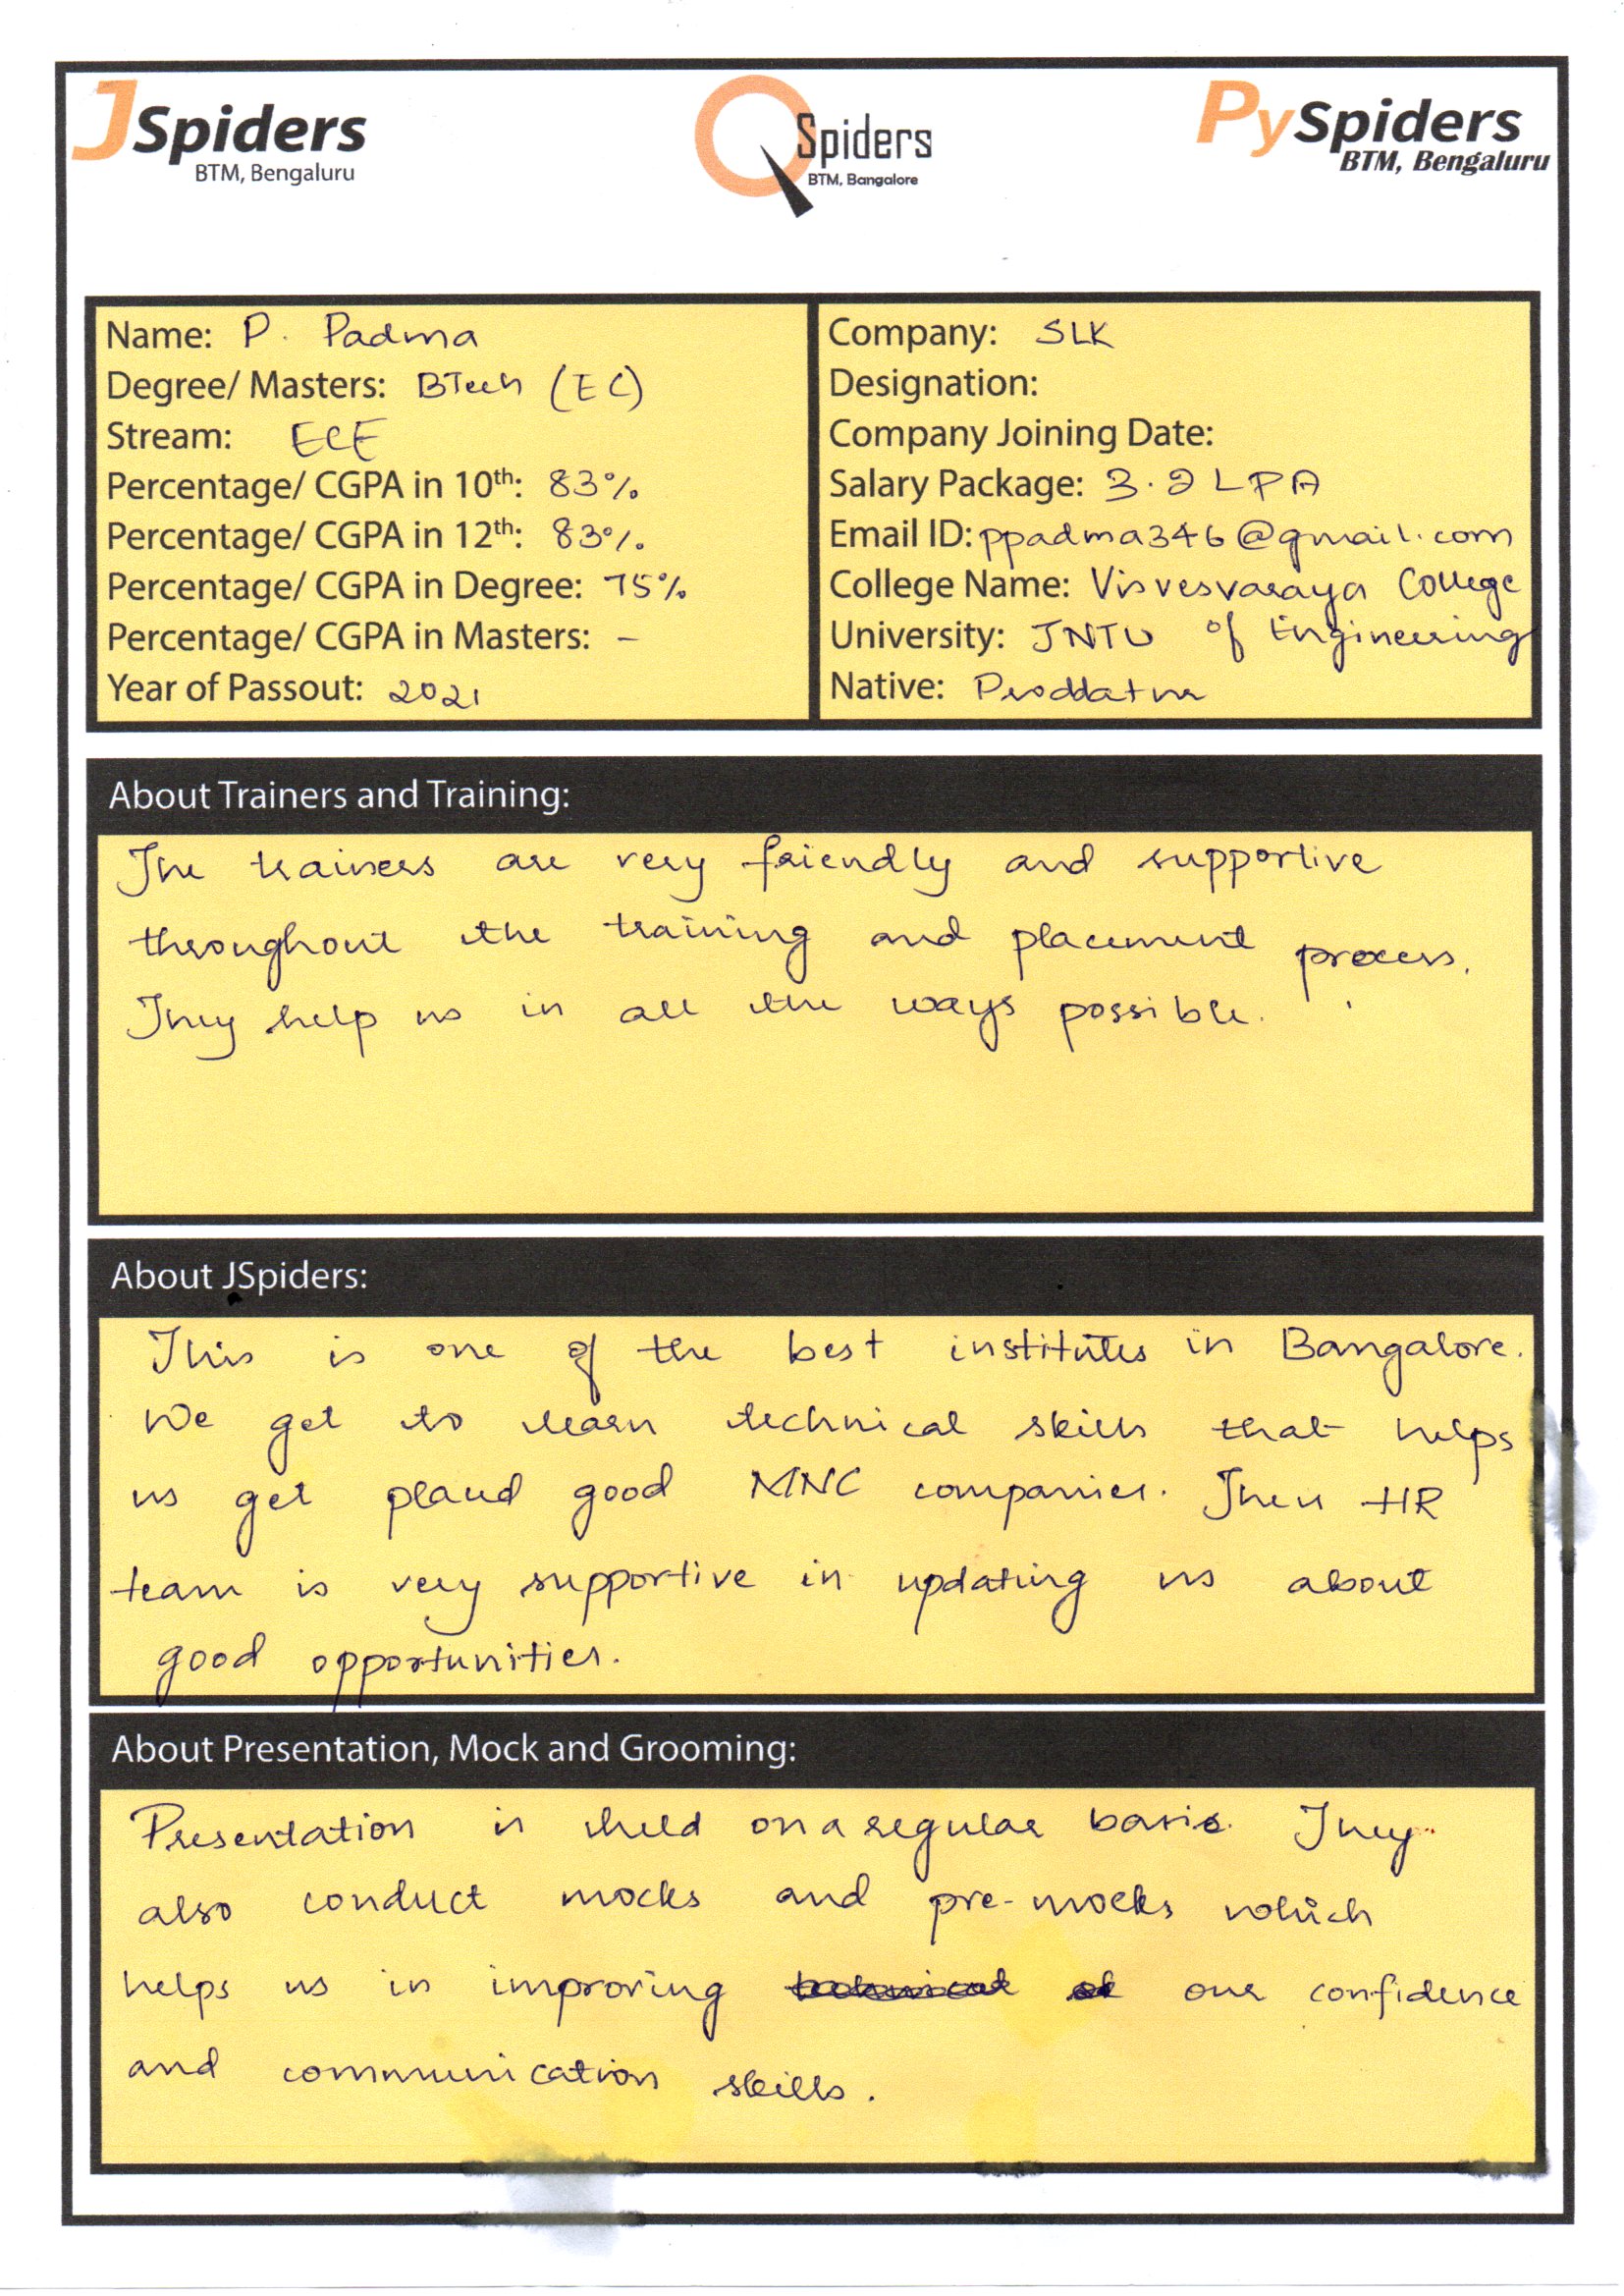 JSpiders
BTM, Bengaluru
QSpiders
BTM, Bangalore
PySpiders
BTM, Bengaluru
Name: P. Padma
Degree/ Masters: BTech (EC)
Stream: ECE
Percentage/ CGPA in 10th: 83%
Percentage/ CGPA in 12th: 83%.
Percentage/ CGPA in Degree: 75%
Percentage/ CGPA in Masters: -
Year of Passout: 2021
Company: SLK
Designation:
Company Joining Date:
Salary Package: 3.2 LPA
Email ID: ppadma346@gmail.com
College Name: Visvesvaraya College
of Engineering
University: JNTU
Native: Proddatur
About Trainers and Training:
The trainers are very friendly and supportive
throughout the training and placement process.
They help us in all the ways possible.
About JSpiders:
This is one of the best institutes in Bangalore.
We get to learn technical skills that helps
us get placed good MNC companies. Then HR
team is very supportive in updating us about
good opportunities.
About Presentation, Mock and Grooming:
Presentation is held on a regular basis. They
also conduct mocks and pre-mocks which
helps us in improving our confidence
and communication skills.